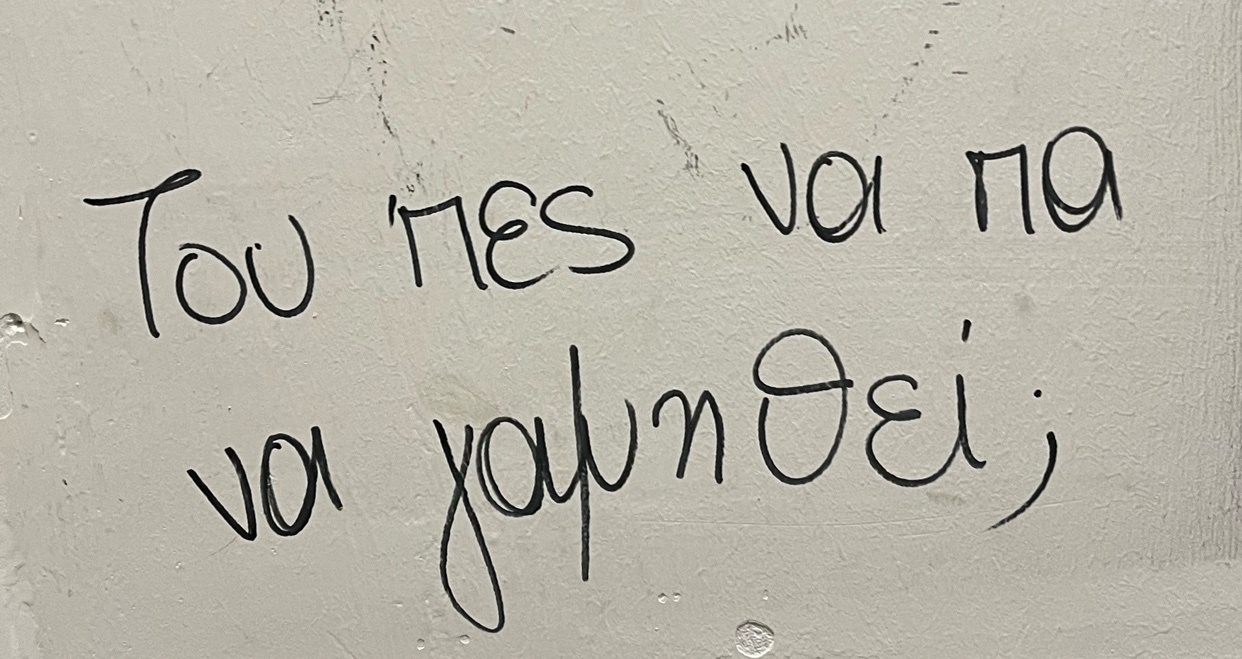 Του 'πες να πα
να γαμηθεί;